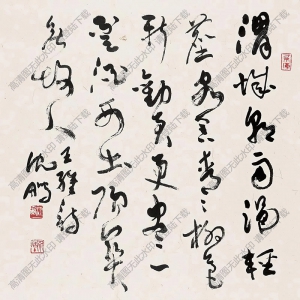 渭城朝雨浥輕
塵客舍青〻柳色
新勸君更盡一
杯酒西出陽關
無故人
王維詩
沈鵬
高清图无此水印